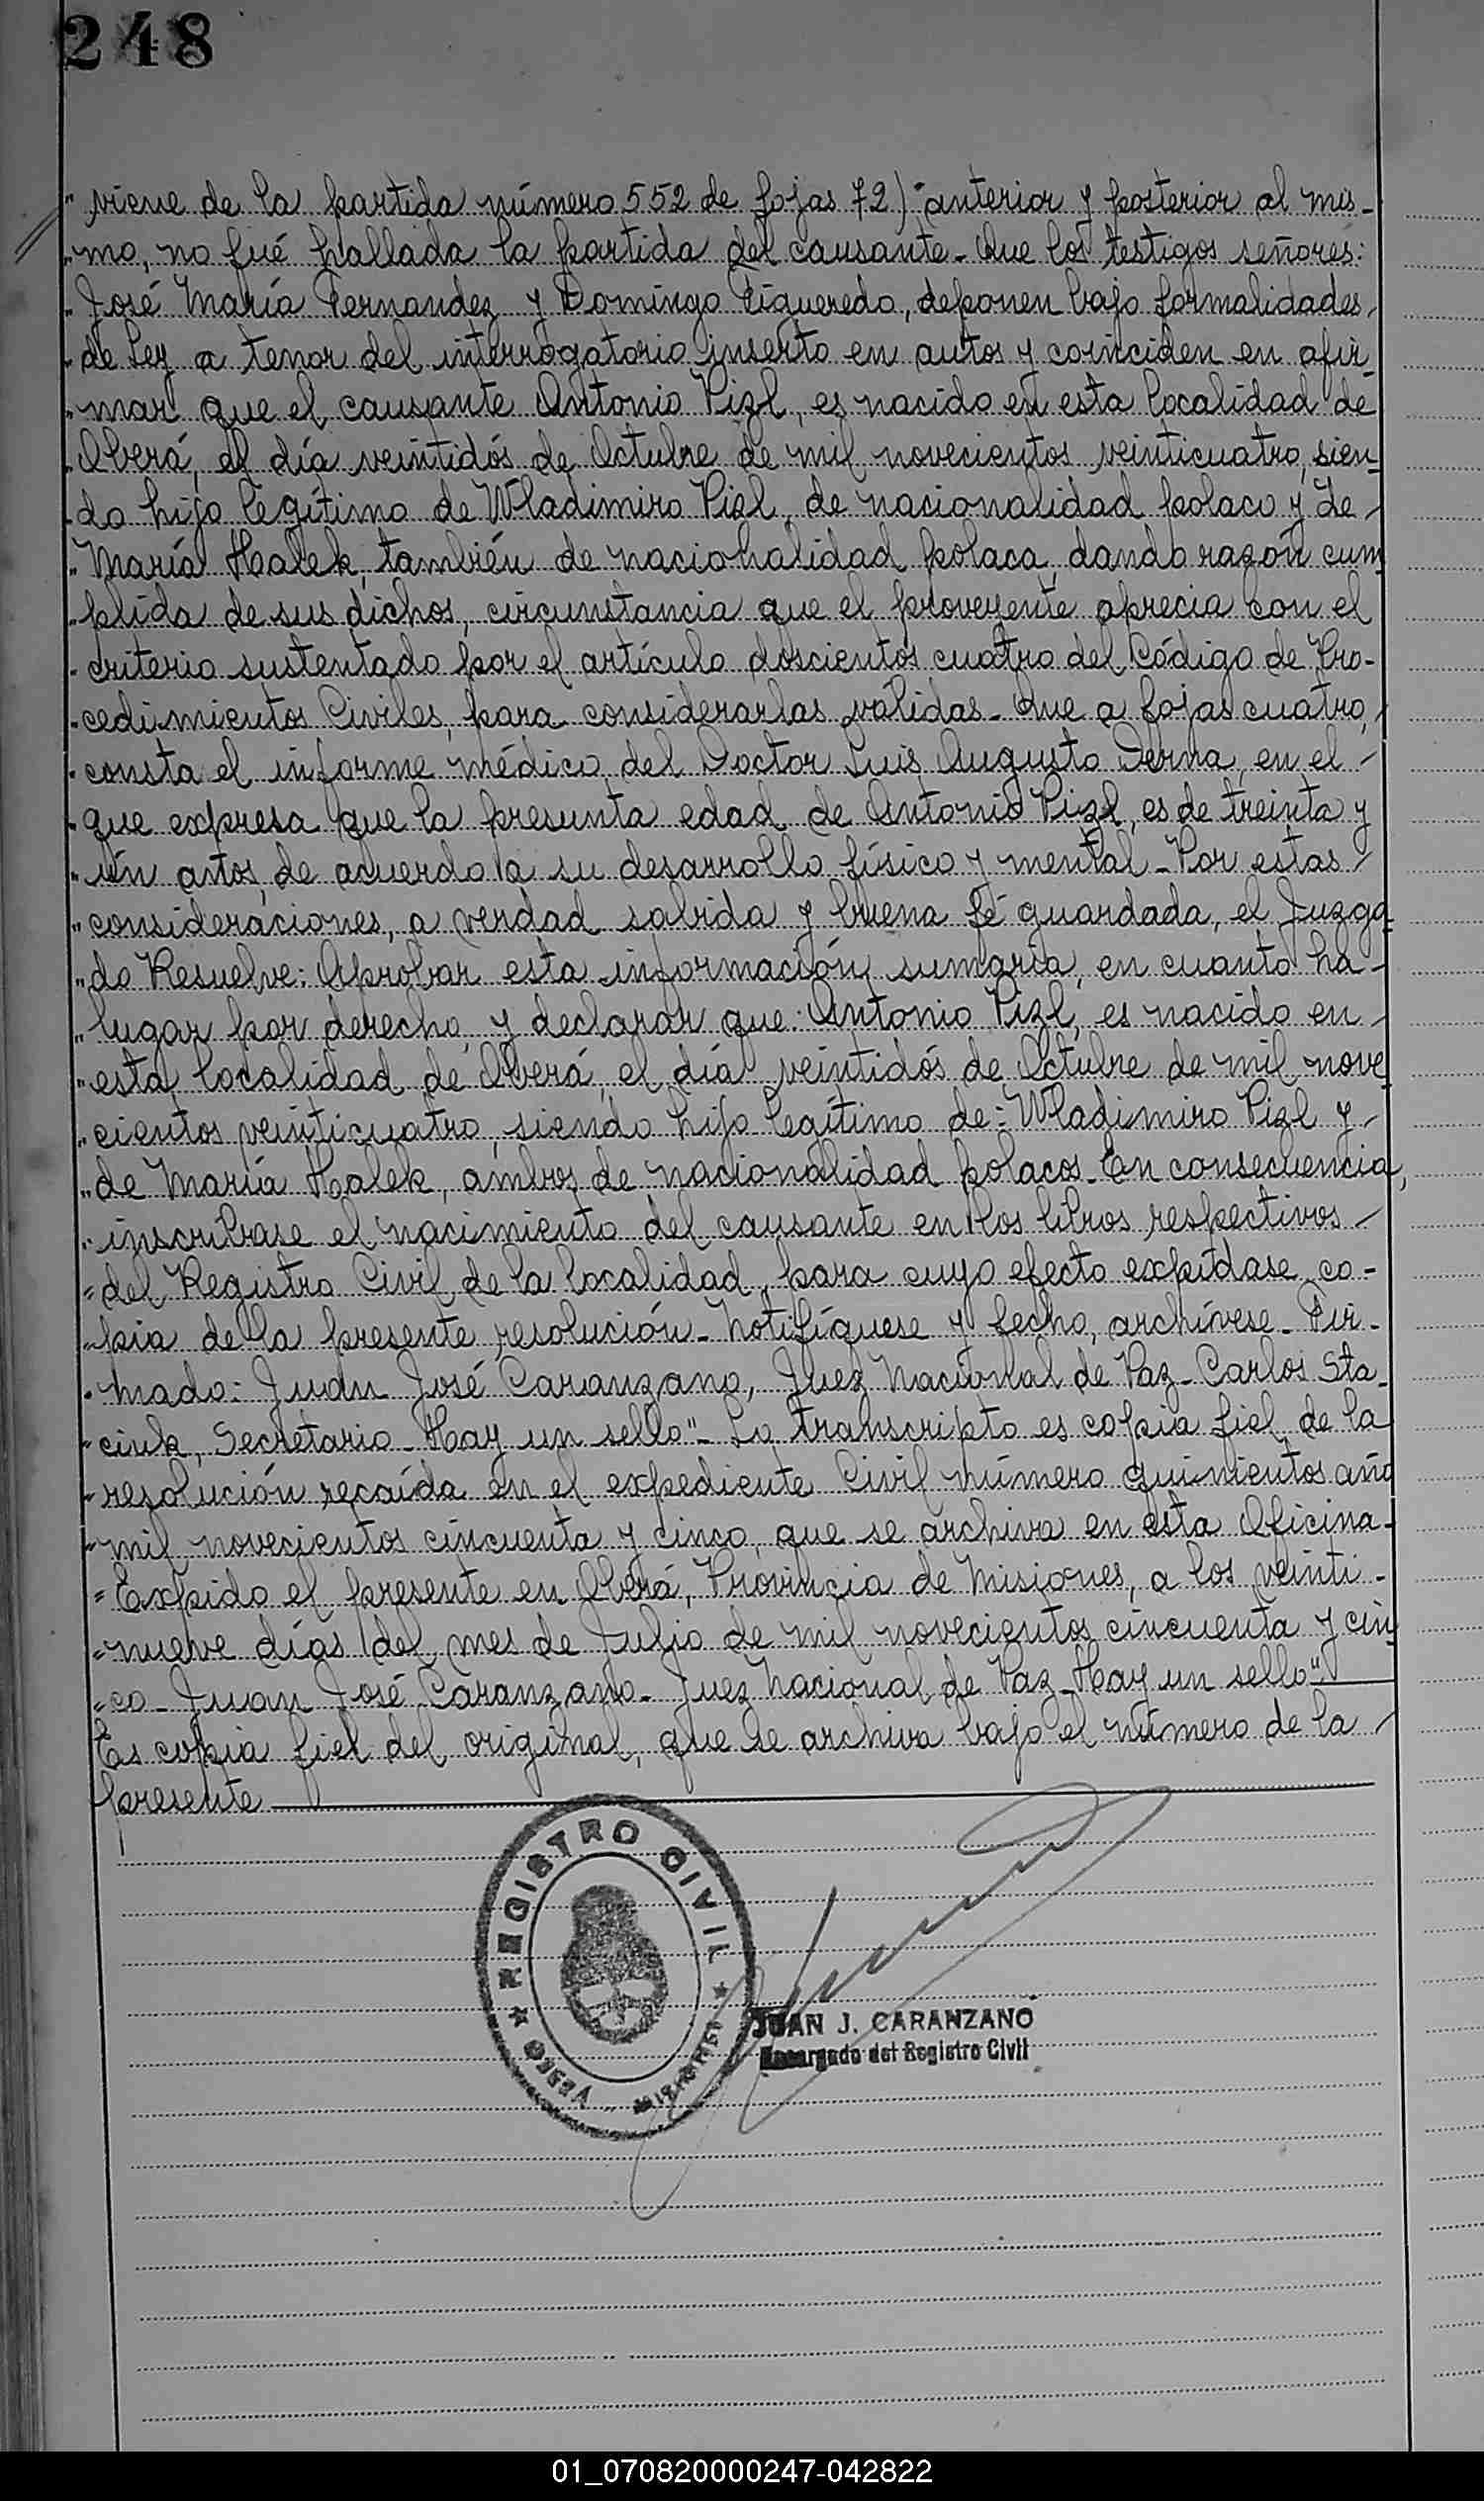 248
" viene de la partida número 552 de fojas 72) "anterior y posterior al mis-
" mo, no fué hallada la partida del causante - Que los testigos señores:
" José María Fernandez y Domingo Figueredo, deponen bajo formalidades
" de Ley a tenor del interrogatorio inserto en autos y coinciden en afir
" mar que el causante Antonio Pizl, es nacido en esta localidad de
" Oberá, el día veintidós de Octubre de mil novecientos veinticuatro, sien-
" do hijo legítimo de Wladimiro Pizl, de nacionalidad polaco y de
" María Halek, también de nacionalidad polaca, dando razón cum
" plida de sus dichos, circunstancia que el proveyente aprecia con el
" criterio sustentado por el artículo doscientos cuatro del Código de Pro-
" cedimientos Civiles, para considerarlas válidas - Que a fojas cuatro,
" consta el informe médico del Doctor Luis Augusto Derna, en el
" que expresa que la presunta edad de Antonio Pizl, es de treinta y
" ún años, de acuerdo a su desarrollo físico y mental - Por estas
" consideraciones, a verdad sabida y buena fé guardada, el Juzga
" do Resuelve: Aprobar esta información sumaria, en cuanto ha
" lugar por derecho, y declarar que: Antonio Pizl, es nacido en
" esta localidad de Oberá, el día veintidós de Octubre de mil nove
" cientos veinticuatro, siendo hijo legítimo de: Wladimiro Pizl y
" de María Halek, ambos de nacionalidad polacos - En consecuencia,
" inscribase el nacimiento del causante en los libros respectivos
" del Registro Civil de la localidad, para cuyo efecto expídase co-
" pia de la presente resolución - Notifíquese y fecho, archívese - Fir-
" mado: Juan José Caranzano, Juez Nacional de Paz - Carlos Sta-
" ciuk, Secretario - Hay un sello" - Lo transcripto es copia fiel de la
" resolución recaída en el expediente Civil número quinientos año
" mil novecientos cincuenta y cinco, que se archiva en esta Oficina -
" Expido el presente en Oberá, Provincia de Misiones, a los veinti-
" nueve días del mes de Julio de mil novecientos cincuenta y cin
" co - Juan José Caranzano - Juez Nacional de Paz - Hay un sello"
Es copia fiel del original, que se archiva bajo el número de la
presente
REGISTRO CIVIL
OBERA
MISIONES
JUAN J. CARANZANO
Encargado del Registro Civil
01_070820000247-042822